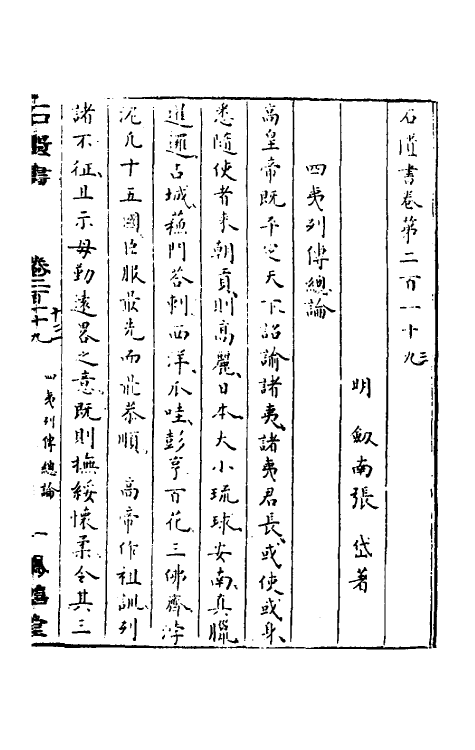 石匱書卷第二百一十九三
明 劔南張 岱著
四夷列傳總論
高皇帝既平定天下詔諭諸夷諸夷君長或使或身
悉隨使者来朝貢則高麗日本大小琉球安南真臘
暹邏占城蘓門荅剌西洋爪哇彭亨百花三佛齊浡
泥凡十五國臣服最先而最恭順 高帝作祖訓列
諸不征且示毋勤遠畧之意既則撫綏懷柔令其三
石匱書 卷二百一十九 十三 四夷列傳總論 一 鳳嬉堂